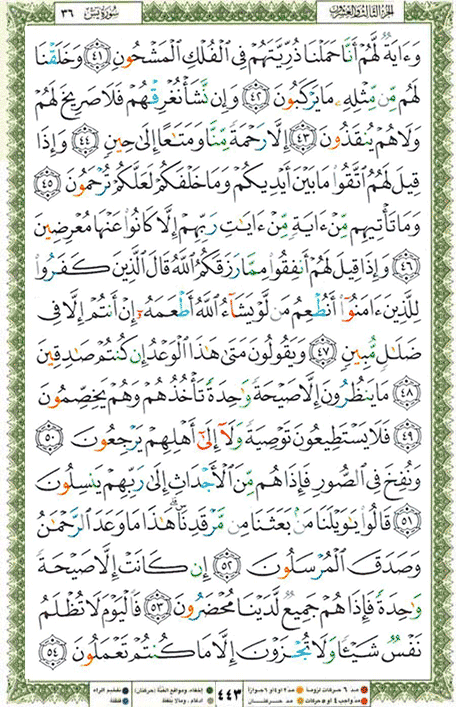 سورة يس ٣٦
الجزء الثالث والعشرون
وَءَايَةٌ لَّهُمْ أَنَّا حَمَلْنَا ذُرِّيَّتَهُمْ فِى ٱلْفُلْكِ ٱلْمَشْحُونِ ٤١ وَخَلَقْنَا
لَهُم مِّن مِّثْلِهِۦ مَا يَرْكَبُونَ ٤٢ وَإِن نَّشَأْ نُغْرِقْهُمْ فَلَا صَرِيخَ لَهُمْ
وَلَا هُمْ يُنقَذُونَ ٤٣ إِلَّا رَحْمَةً مِّنَّا وَمَتَٰعًا إِلَىٰ حِينٍ ٤٤ وَإِذَا
قِيلَ لَهُمُ ٱتَّقُوا۟ مَا بَيْنَ أَيْدِيكُمْ وَمَا خَلْفَكُمْ لَعَلَّكُمْ تُرْحَمُونَ ٤٥
وَمَا تَأْتِيهِم مِّنْ ءَايَةٍ مِّنْ ءَايَٰتِ رَبِّهِمْ إِلَّا كَانُوا۟ عَنْهَا مُعْرِضِينَ
٤٦ وَإِذَا قِيلَ لَهُمْ أَنفِقُوا۟ مِمَّا رَزَقَكُمُ ٱللَّهُ قَالَ ٱلَّذِينَ كَفَرُوا۟
لِلَّذِينَ ءَامَنُوٓا۟ أَنُطْعِمُ مَن لَّوْ يَشَآءُ ٱللَّهُ أَطْعَمَهُۥٓ إِنْ أَنتُمْ إِلَّا فِى
ضَلَٰلٍ مُّبِينٍ ٤٧ وَيَقُولُونَ مَتَىٰ هَٰذَا ٱلْوَعْدُ إِن كُنتُمْ صَٰدِقِينَ
٤٨ مَا يَنظُرُونَ إِلَّا صَيْحَةً وَٰحِدَةً تَأْخُذُهُمْ وَهُمْ يَخِصِّمُونَ
٤٩ فَلَا يَسْتَطِيعُونَ تَوْصِيَةً وَلَآ إِلَىٰٓ أَهْلِهِمْ يَرْجِعُونَ ٥٠
وَنُفِخَ فِى ٱلصُّورِ فَإِذَا هُم مِّنَ ٱلْأَجْدَاثِ إِلَىٰ رَبِّهِمْ يَنسِلُونَ
٥١ قَالُوا۟ يَٰوَيْلَنَا مَنۢ بَعَثَنَا مِن مَّرْقَدِنَا ۜ ۗ هَٰذَا مَا وَعَدَ ٱلرَّحْمَٰنُ
وَصَدَقَ ٱلْمُرْسَلُونَ ٥٢ إِن كَانَتْ إِلَّا صَيْحَةً
وَٰحِدَةً فَإِذَا هُمْ جَمِيعٌ لَّدَيْنَا مُحْضَرُونَ ٥٣ فَٱلْيَوْمَ لَا تُظْلَمُ
نَفْسٌ شَيْـًٔا وَلَا تُجْزَوْنَ إِلَّا مَا كُنتُمْ تَعْمَلُونَ ٥٤
مد ٦ حركات لزوما مد ٢ أو ٤ أو ٦ جوازا
مد واجب ٤ أو ٥ حركات مد حركتان
٤٤٣
إخفاء، ومواقع الغنة (حركتان) تفخيم الراء
إدغام، وما لا يلفظ قلقلة